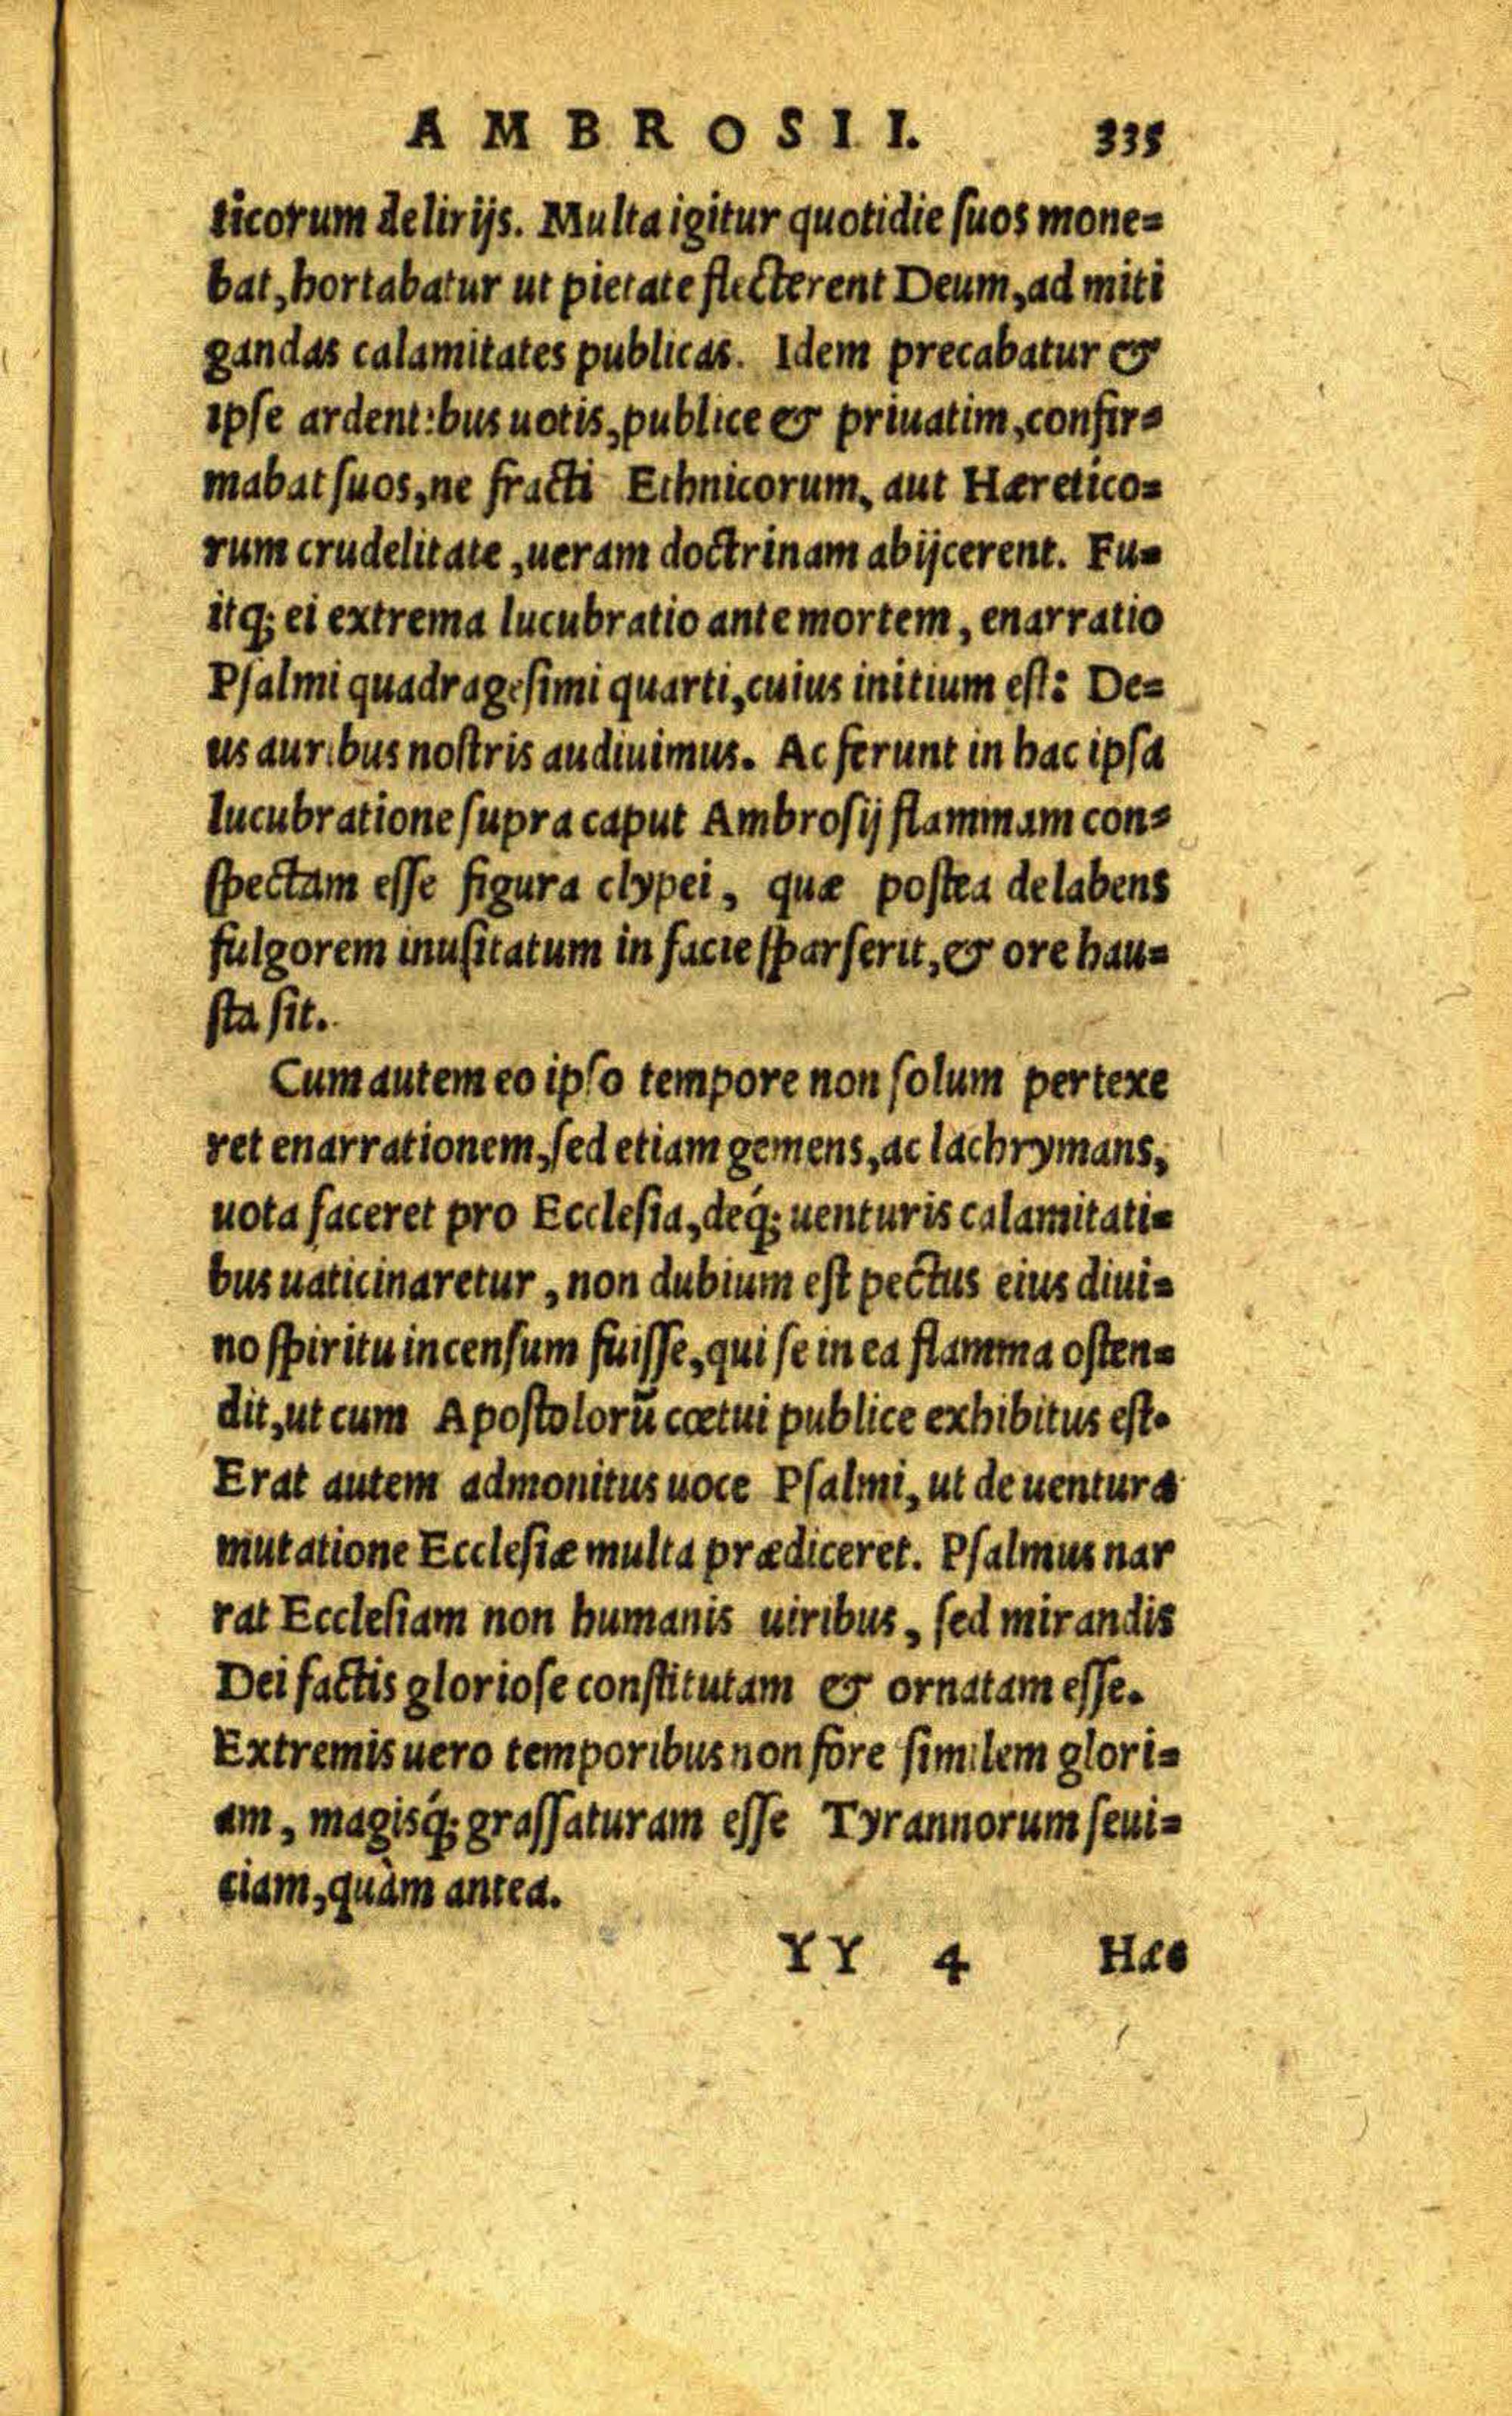 AMBROSII. 335
ticorum delirijs. Multa igitur quotidie suos mone=
bat, hortabatur ut pietate flecterent Deum, ad miti
gandas calamitates publicas. Idem precabatur &
ipse ardentibus uotis, publice & priuatim, confir=
mabat suos, ne fracti Ethnicorum, aut Hæretico=
rum crudelitate, ueram doctrinam abijcerent. Fu=
itq; ei extrema lucubratio ante mortem, enarratio
Psalmi quadragesimi quarti, cuius initium est: De=
us auribus nostris audiuimus. Ac ferunt in hac ipsa
lucubratione supra caput Ambrosij flammam con=
spectam esse figura clypei, quæ postea delabens
fulgorem inusitatum in facie sparserit, & ore hau=
sta sit.
Cum autem eo ipso tempore non solum pertexe
ret enarrationem, sed etiam gemens, ac lachrymans,
uota faceret pro Ecclesia, deq́; uenturis calamitati=
bus uaticinaretur, non dubium est pectus eius diui=
no spiritu incensum fuisse, qui se in ea flamma osten=
dit, ut cum Apostolorū cœtui publice exhibitus est.
Erat autem admonitus uoce Psalmi, ut de uentura
mutatione Ecclesiæ multa prædiceret. Psalmus nar
rat Ecclesiam non humanis uiribus, sed mirandis
Dei factis gloriose constitutam & ornatam esse.
Extremis uero temporibus non fore similem glori=
am, magisq́; grassaturam esse Tyrannorum seui=
ciam, quàm antea.
YY 4 Hæc